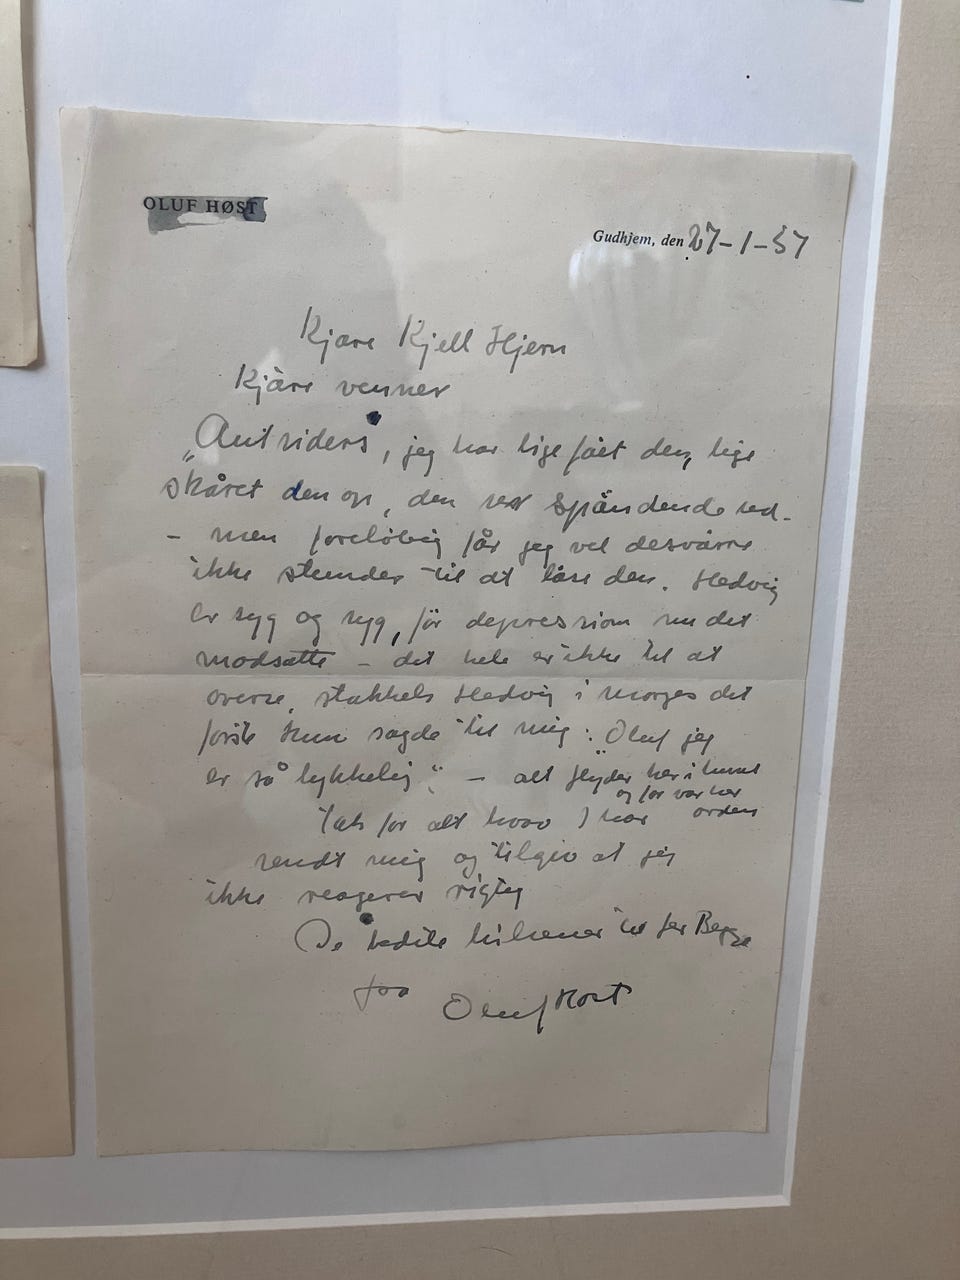 OLUF HØST
Gudhjem, den 27-1-57
Kjære Kjell Hjern
Kjære venner
"Outsiders, jeg har lige fået den, lige
skåret den op, den ser spændende ud -
- men foreløbig får jeg vel desværre
ikke stunder til at læse den. Hedvig
er syg og syg, før depression nu det
modsatte - det hele er ikke til at
overse, stakkels Hedvig i morges det
første hun sagde til mig: "Oluf jeg
er så lykkelig" - alt flyder her i huset
og før var her
orden
Tak for alt hvad I har
sendt mig og tilgiv at jeg
ikke reagerer rigtig
De bedste hilsener til Jer Begge
fra
Oluf Høst